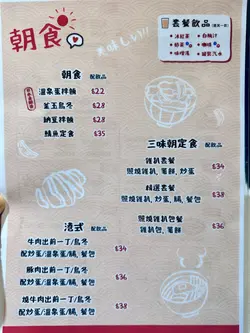 朝食
美味しい!!!
套餐飲品
凍紅茶
白桃汁
綠茶
咖啡
味噌湯
朝食 配飲品
溫泉蛋拌麵 $22
釜玉烏冬 $28
納豆拌麵 $28
鯖魚定食 $35
三味朝定食 配飲品
雞扒套餐 $34
照燒雞扒, 薯餅, 炒蛋
精選套餐 $38
照燒雞扒, 炒蛋, 腸, 餐包
照燒雞扒包餐 $36
雞扒包, 薯餅, 腸
港式 配飲品
牛肉出前一丁/烏冬 $34
配炒蛋/溫泉蛋/腸, 餐包
豚肉出前一丁/烏冬 $36
配炒蛋/溫泉蛋/腸, 餐包
燒牛肉出前一丁/烏冬 $38
配炒蛋/溫泉蛋/腸, 餐包